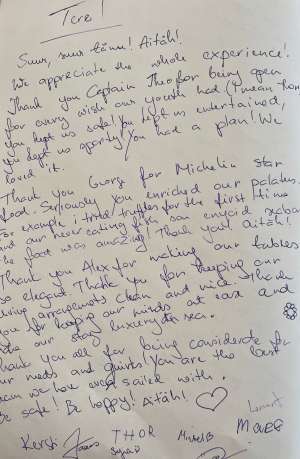 Tere!
Suur, suur tänu! Aitäh!
We appreciate the whole experience!
Thank you Captain Theo for being open
for every wish our youth had (I mean
you kept us safe! You kept us entertained,
you kept us sporty! You had a plan! We
loved it.
Thank you George for Michelin star
food. Seriously. You enriched our palates.
For example i tried truffles for the first time
and our never eating fish son enjoyed
the food was amazing! Thank you! Aitäh!
Thank you Alex for making our tables
so elegant. Thank you for keeping our
living arrangements clean and nice. Thank
you for keeping our minds at ease and
make our stay luxury at sea.
Thank you all for being considerate for
our needs and quirks! You are the best
team we have ever sailed with.
Be safe! Be happy! Aitäh!
Kersti
THOR